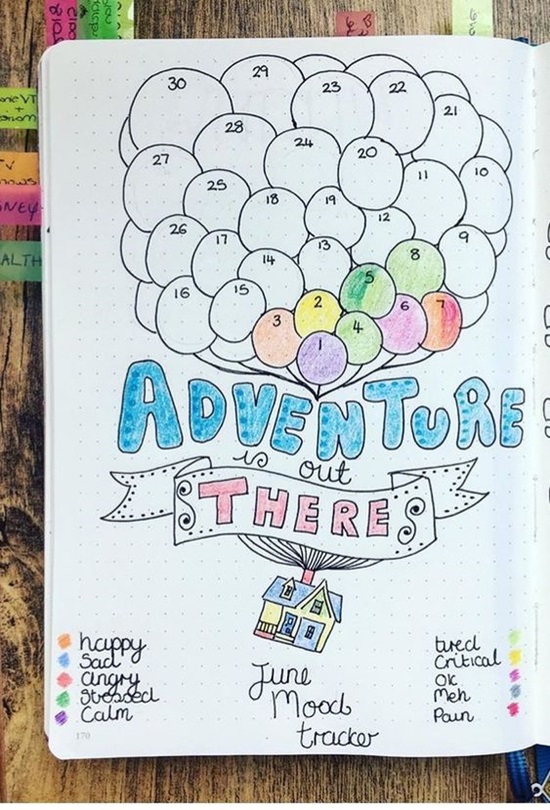 30
29
23
22
21
28
24
20
27
25
18
19
11
10
12
26
17
13
9
14
8
16
15
5
2
6
7
3
4
1
ADVENTURE
is out
THERE
happy
Sad
angry
Stressed
Calm
June
Mood
tracker
tired
Critical
OK
Meh
Pain
170